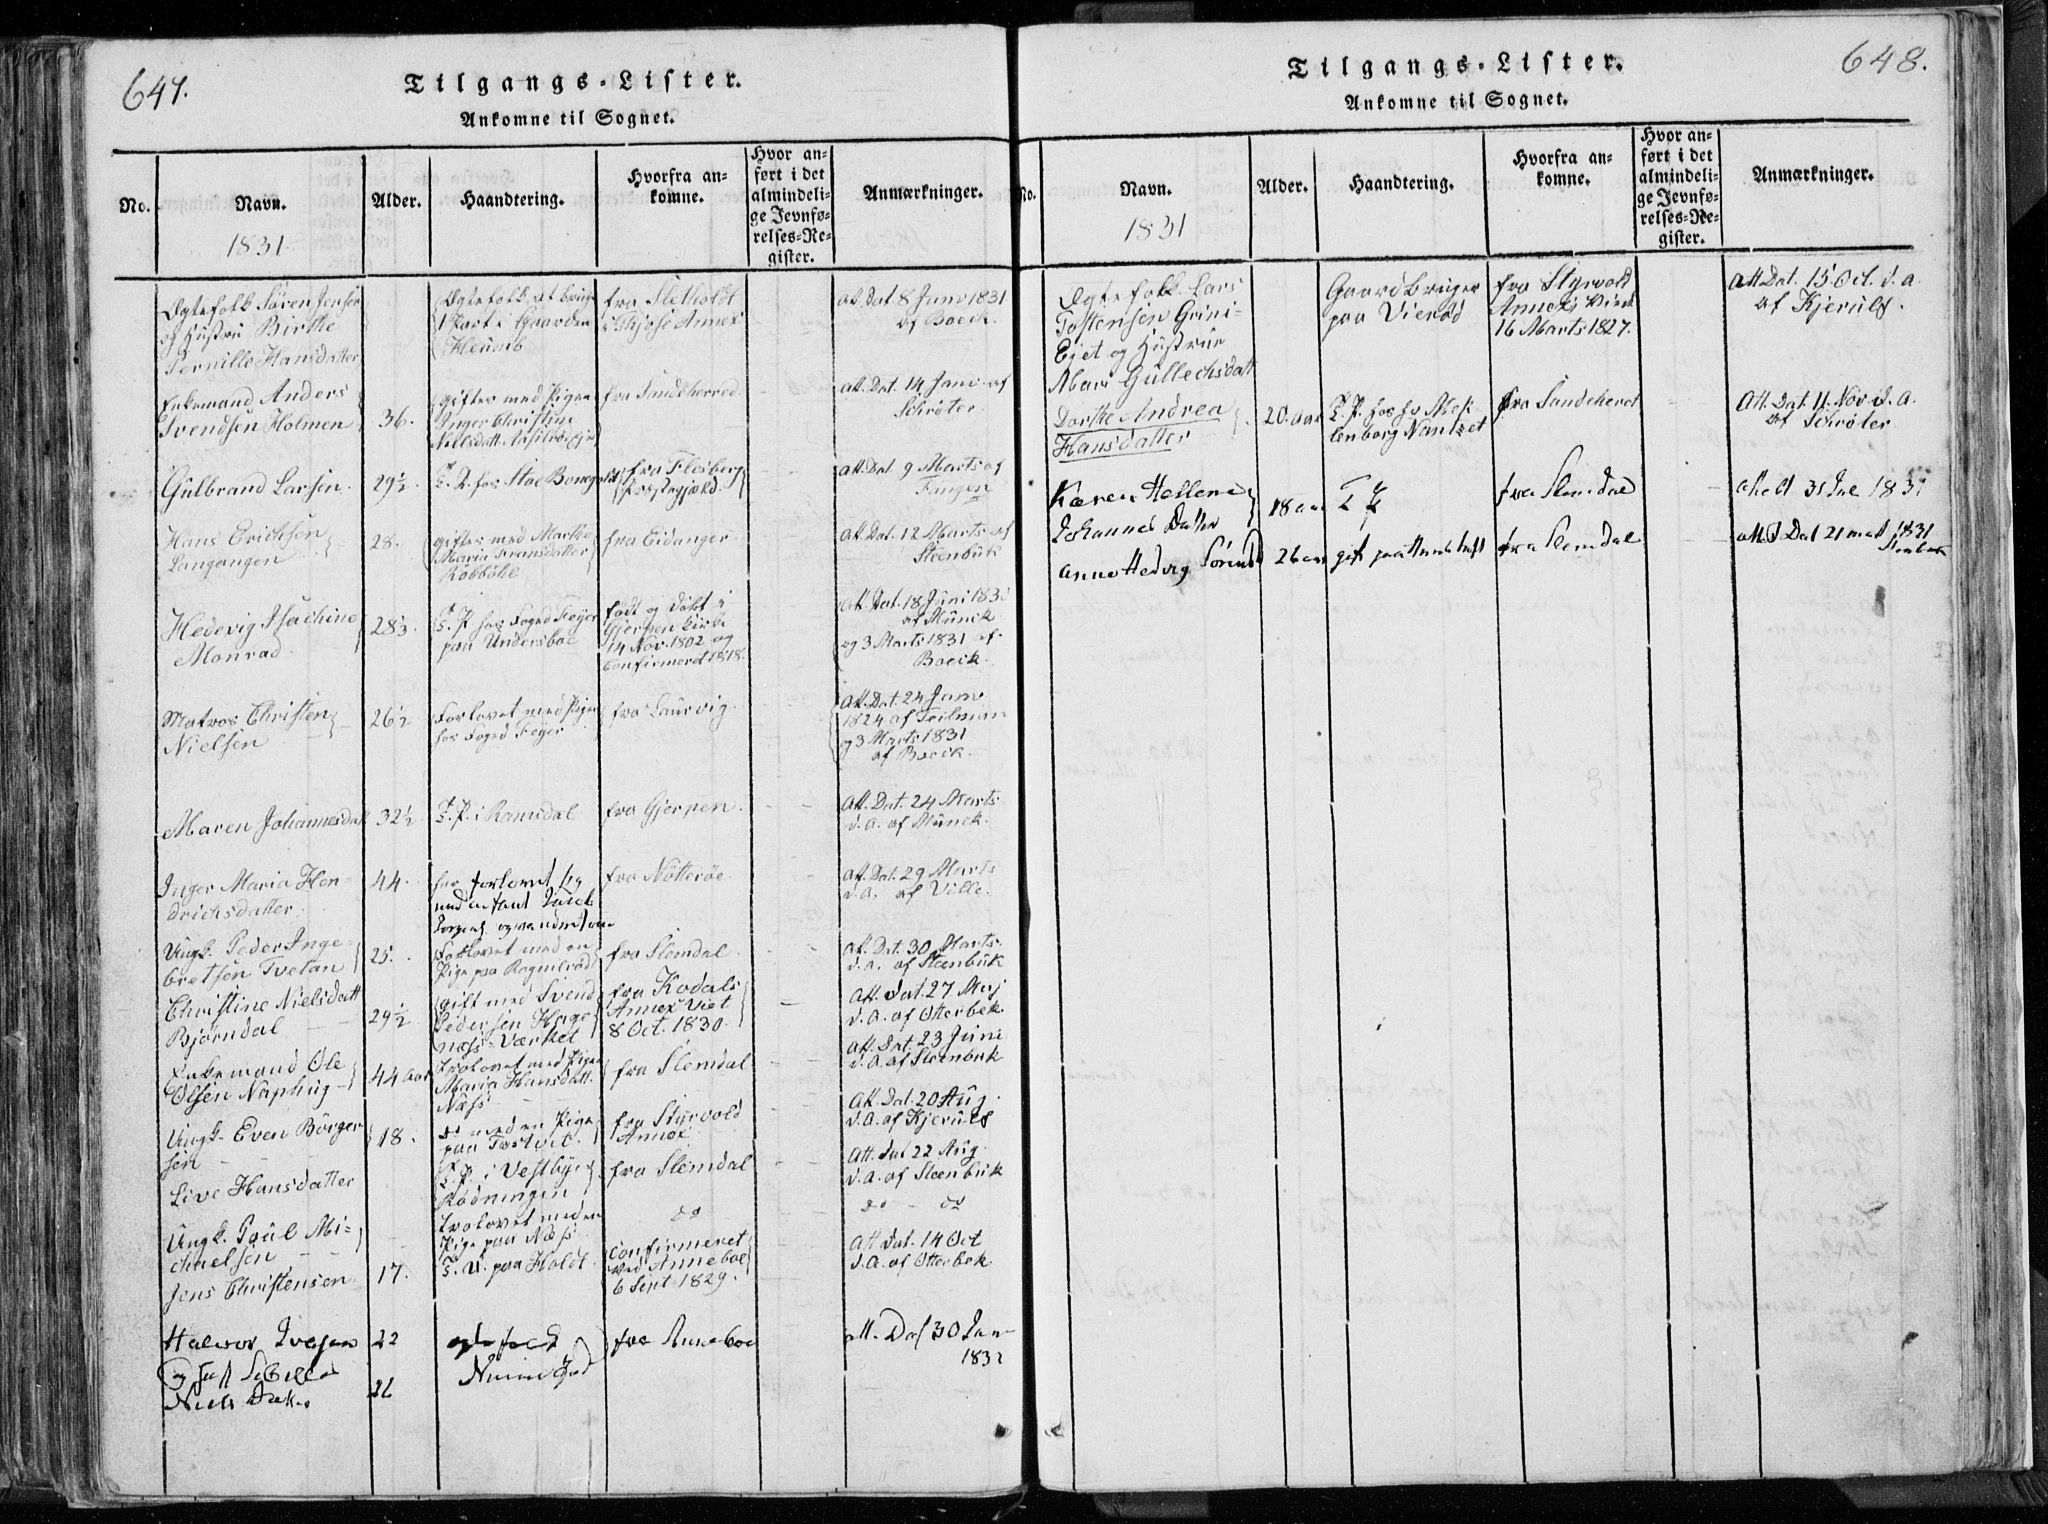 647.
Tilgangs-Lister.
Ankomne til Sognet.
No.
Navn.
1831.
Alder.
Haandtering.
Hvorfra an-
komne.
Hvor an-
ført i det
almindeli-
ge Jevnfø-
relses-Re-
gister.
Anmærkninger.
Ægtefolk Sören Jensen
og Hustru Birthe
Pernille Hansdatter
Ægtefolk, at bruge
1 Part i Gaarden
Heumb
fra Sletholdt
i Hjose Annex
att. Dat. 8 Janv 1831
af Boeck.
Enkemand Anders
Svendsen Holmen
36.
giftes med Pigen
Inger Christine
Nielsdatt.
fra Sandeherred
att. Dat. 14 Janv. af
Schrøter.
Gulbrand Larsen.
29½
T. D. hos
fra Flesberg
Præstegjæld.
att. Dat. 9 Marts af
Fangen
Hans Erichsen
Langangen
28.
giftes med Marthe
Maria Fransdatter
Röbböhl
fra Eidanger
att. Dat. 12 Marts af
Steenbuk
Hedevig Isachine
Monrad
28⅓.
T. P. hos Foged Feyer
paa Undersboe
født og döbt i
Gjerpen Kirke
14 Nov. 1802 og
Confirmeret 1818.
att. Dat. 18 Juni 183
af Münck
og 3 Marts 1831 af
Boeck.
Matros Christen
Nielsen
26½
Forlovet med Pigen
hos Foged Feyer
fra Laurvig.
att. Dat. 24 Janv
1824 af Teilman
og 3 Marts 1831
af Boeck.
Maren Johannesdatt
32½
T. P. i Ramsdal
fra Gjerpen.
att. Dat. 24 Marts
d. A. af Münck.
Inger Maria Hen-
drichsdatter.
44.
har forlovet sig
med
fra Nötteröe.
att. Dat. 29 Marts
d. A. af Wille.
Ungk. Peder Inge-
bretsen Tvetan
25.
Forlovet med en
Pige paa Ragnilröd
fra Slemdal.
att. Dat. 30 Marts.
d. A. af Steenbuk
Christine Nielsdatt
Bjørndal
29½
gift med Svend
Pedersen Hage
Næss-Værket
fra Kodals
Annex Viet
8 Oct. 1830.
att. Dat. 27 Maj
d. A. af Otterbek.
Enkemand Ole
Olsen Naphug
44 aar
trolovet med Pigen
Maria Hansdatt.
Næss
fra Slemdal
att. Dat. 23 Juni
d. A. af Steenbuk
Ungk. Even Börger
sen
18.
do med en Pige
paa Tvetvet.
fra Styrvold
Annex
att. Dat. 20 Aug.
d. A. af Kjerulf
Live Hansdatter
T. P. i Vestbye
Rødningen
fra Slemdal
att. Dat 22 Aug.
d. A. af Steenbuk
Ungk. Poul Mi-
chaelsen
trolovet med en
Pige paa Næss
do
do - do
Jens Christensen
17.
T. D. paa Holdt.
confirmeret
ved Anneboe
6 Sept 1829.
att Dat. 14 Oct
d. A. af Otterbek
Halvor Iversen
22
fra Anneboe
att. Dat 30 Jan
1832
og
Niels
26
648.
Tilgangs-Lister.
Ankomne til Sognet.
No.
Navn.
1831
Alder.
Haandtering.
Hvorfra an-
komne.
Hvor an-
ført i det
almindeli-
ge Jevnfø-
relses-Re-
gister.
Anmærkninger.
Ægtefolk Lars
Tostensen Grini-
Ejet og Hustrue
Mari Gullechsdatt
Gaardbruger
paa Vieröd
fra Styrvold
Annex Viet
16 Marts 1827.
att. Dat. 15 Oct. d. A.
af Kjerulf.
Dorthe Andrea
Hansdatter
20. aar
T. P. hos Hr Mek
lenborg Nantzet
fra Sandeherret
att. Dat. 11. Nov. d. A.
af Schrøter
Karen Hellene
Johannes Datter
18 aar
T P
fra Slemdal
attest 31 Jul 1831
Anne Hedvig Sörensd
26 aar
gift paa
fra Slemdal
att. Dat 21 1831
Stenbuk